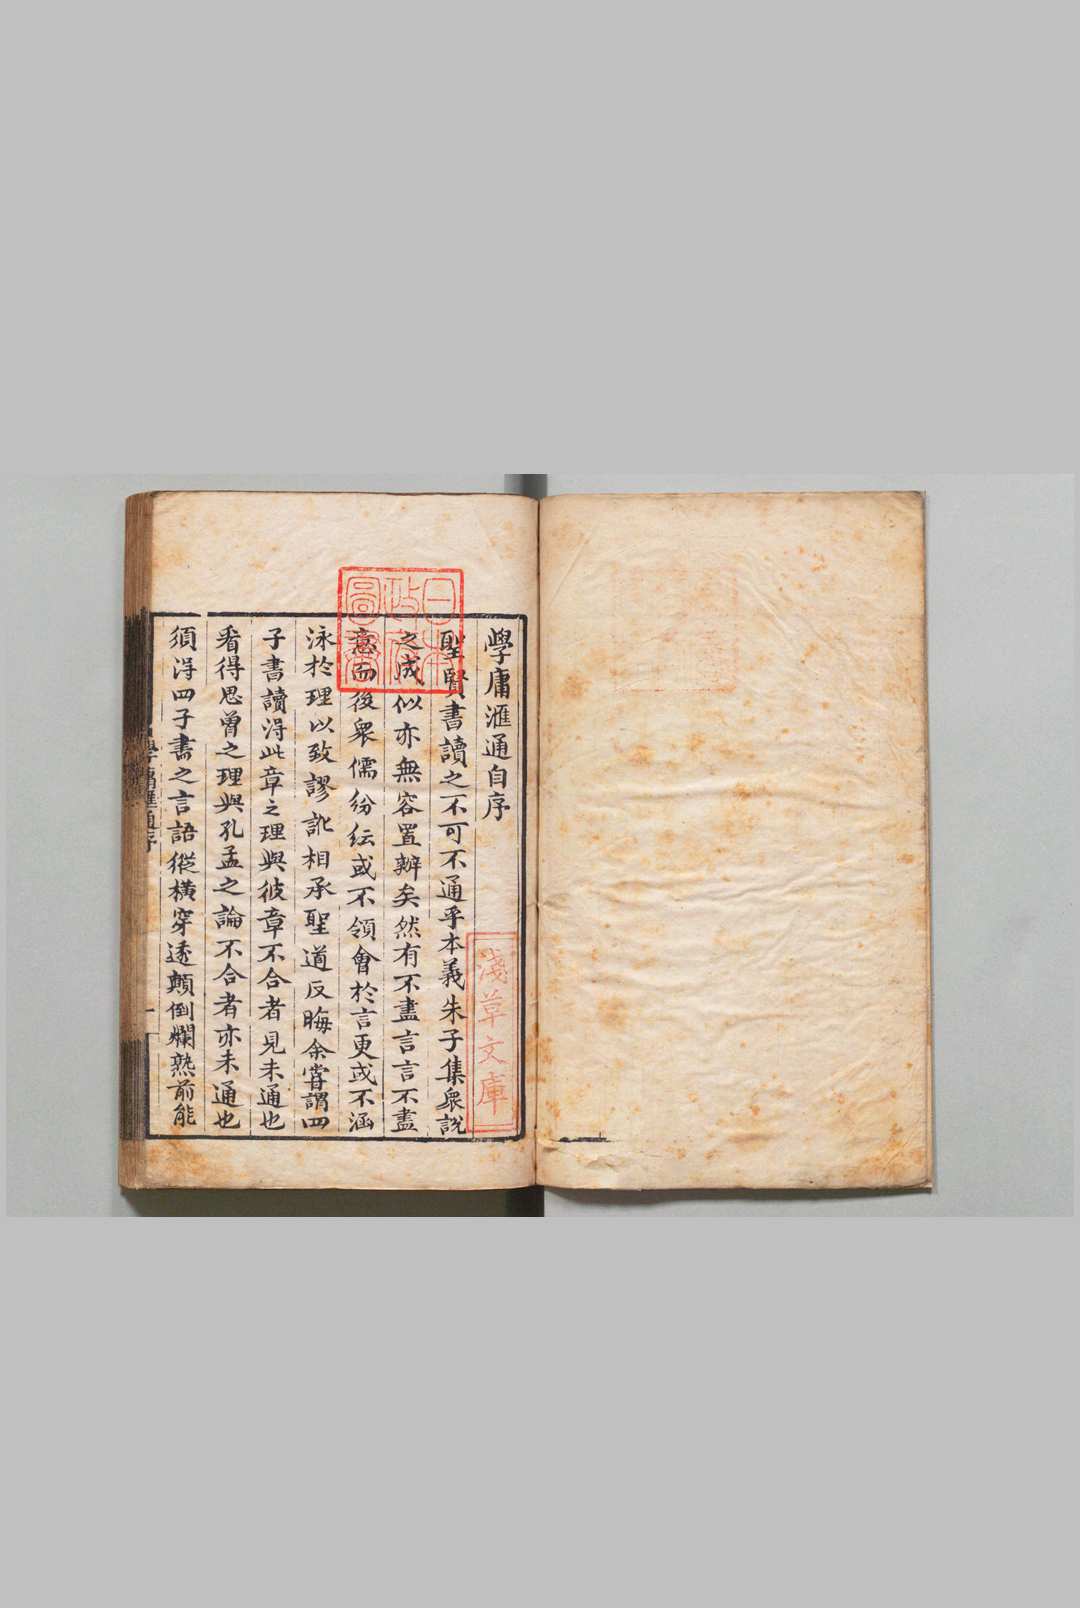 學庸滙通自序
聖賢書讀之不可不通乎本義朱子集衆說
之成似亦無容置辨矣然有不盡言言不盡
意而後衆儒紛紜或不領會於言更或不涵
泳於理以致謬訛相承聖道反晦余嘗謂四
子書讀淂此章之理與彼章不合者見未通也
看得思曾之理與孔孟之論不合者亦未通也
須淂四子書之言語縱橫穿透顛倒爛熟前能
學庸滙通序
一
日本
政府
圖書
淺草文庫